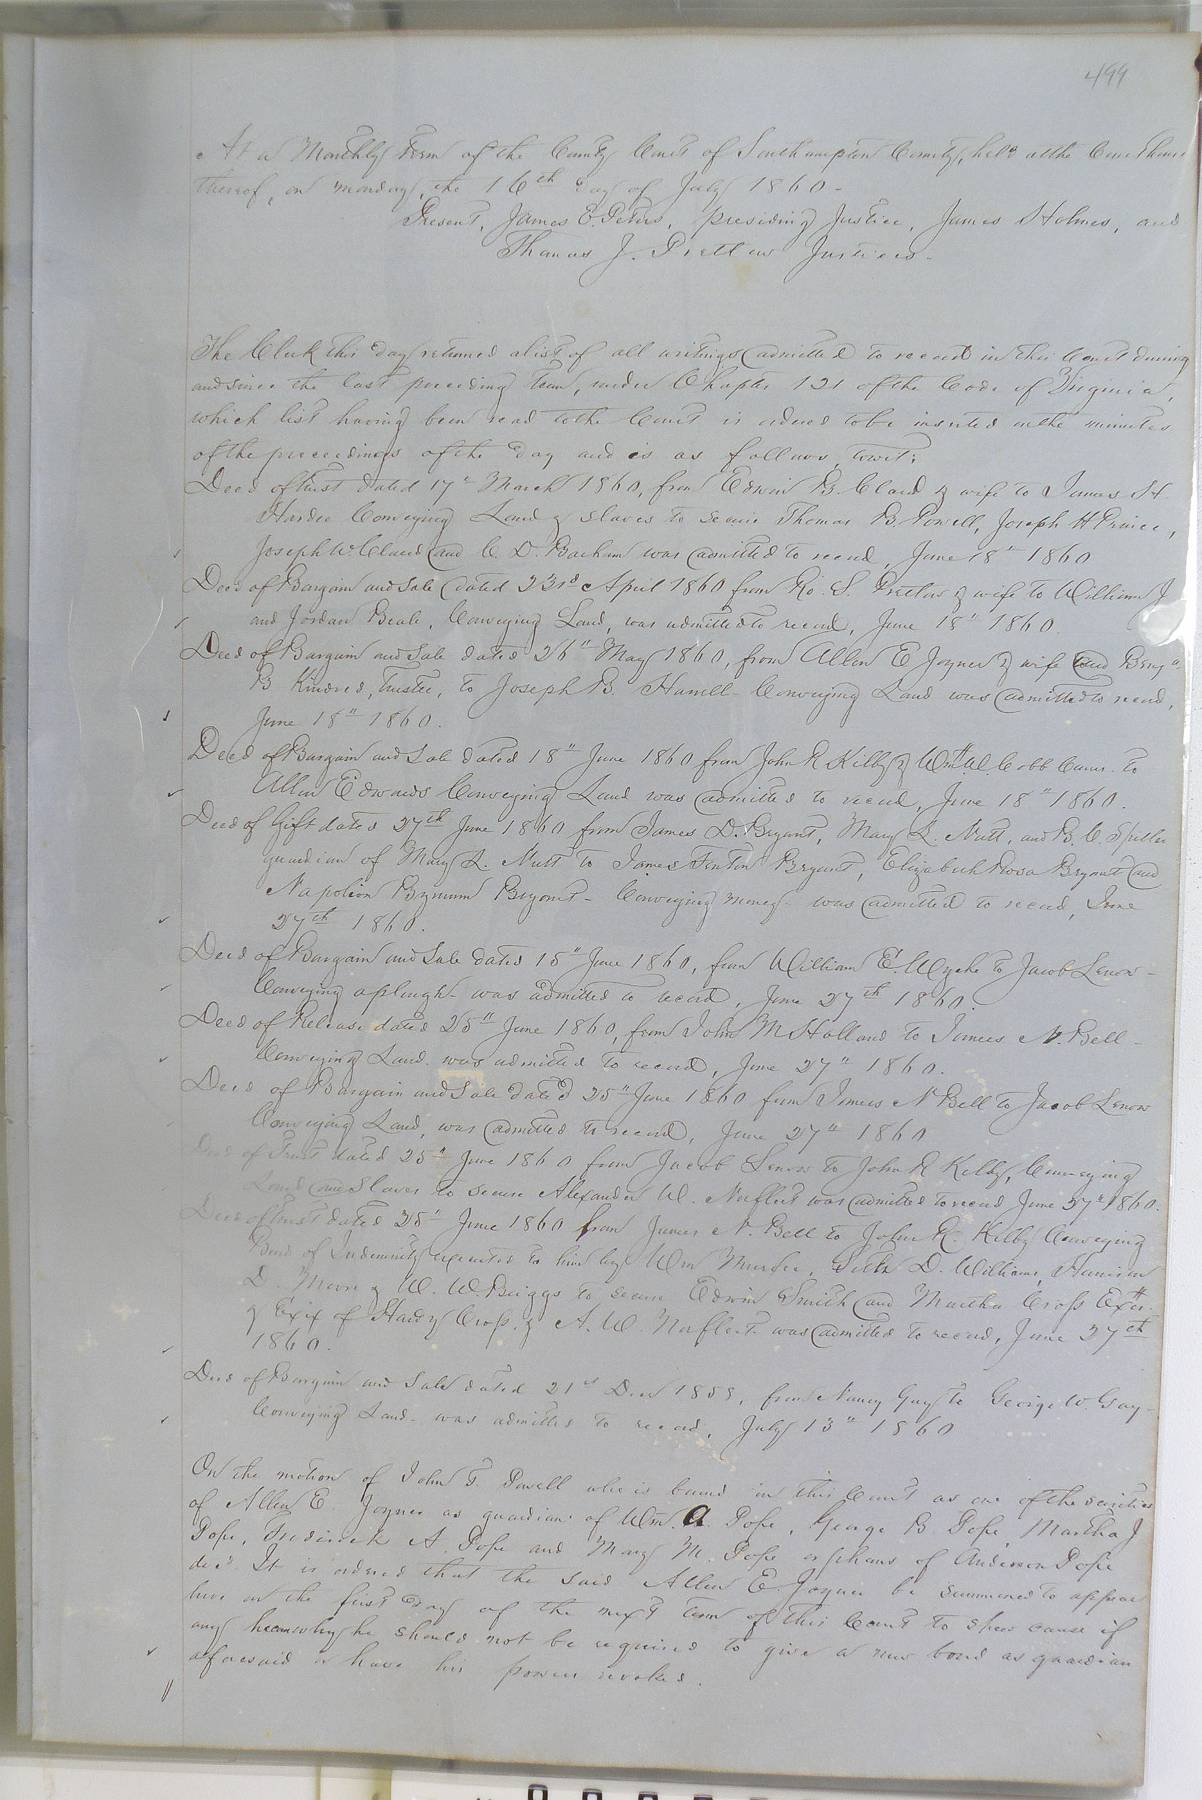 499
At a Monthly Term of the County Court of Southampton County, held at the Court house
thereof, on monday, the 16th day of July 1860-
Present, James E. Peters, presiding Justice, James Holmes, and
Thomas J. Pretlow Justices-
The Clerk this day returned a list of all writings admitted to record in this Court during
and since the last preceding Term, under Chapter 121 of the Code of Virginia,
which list having been read to the Court is ordered to be inserted in the minutes
of the proceedings of the day and is as follows, towit:
Deed of trust dated 17" March 1860, from Edwin B. Claud & wife to James H.
Hardee Conveying Land & slaves to secure Thomas B. Powell, Joseph H Prince,
Joseph W. Claud and C. D. Barham was admitted to record, June 18" 1860
Deed of Bargain and Sale dated 23rd April 1860 from Ro. S. Pretlow & wife to William J
and Jordan Beale, Conveying Land, was admitted to record, June 18" 1860
Deed of Bargain and Sale dated 26" May 1860, from Allen E Joyner & wife and Benja
B Kindred, Trustee, to Joseph B. Harrell- Conveying Land was admitted to record,
June 18" 1860.
Deed of Bargain and Sale dated 18" June 1860 from John R Kilby & Wm W. Cobb Comr. to
Allen Edwards Conveying Land was admitted to record, June 18" 1860.
Deed of Gift dated 27th June 1860 from James D. Bryant, Mary L. Nutt, and B. C. Spiller
guardian of Mary L. Nutt to James Fenton Bryant, Elizabeth Rosa Bryant and
Napoleon Bynum Bryant- Conveying money- was admitted to record, June
27th 1860.
Deed of Bargain and Sale dated 15" June 1860, from William E. Wyche to Jacob Lenow-
Conveying a plough- was admitted to record, June 27th 1860
Deed of Release dated 25" June 1860, from John M Holland to James N. Bell-
Conveying Land. was admitted to record, June 27" 1860.
Deed of Bargain and Sale dated 25" June 1860 from James N Bell to Jacob Lenow
Conveying Land, was admitted to record, June 27" 1860
Deed of Trust dated 25" June 1860 from Jacob Lenow to John R Kilby, Conveying
Land and Slaves to secure Alexander W. Norfleet was admitted to record June 27" 1860.
Deed of trust dated 25" June 1860 from James N. Bell to John R. Kilby Conveying
Bond of Indemnity executed to him by Wm Murfee, Seth D. Williams, Harrison
D. Moore & W. W. Briggs to secure Edwin Smith and Martha Cross Extr.
& Exix of Hardy Cross. & A. W. Norfleet. was admitted to record, June 27th
1860.
Deed of Bargain and Sale dated 21st Decr 1859, from Nancy Gay to George W. Gay-
Conveying Land- was admitted to record, July 13" 1860
On the motion of John T. Powell who is bound in this Court as one of the securities
of Allen E. Joyner as guardian of Wm. A Pope, George B. Pope Martha J
Pope, Frederick A. Pope and Mary M. Pope orphans of Anderson Pope
decd It is ordered that the said Allen E. Joyner be summoned to appear
here on the first day of the next term of this Court to shew cause if
any he can why he should not be required to give a new bond as guardian
aforesaid or have his powers revoked.